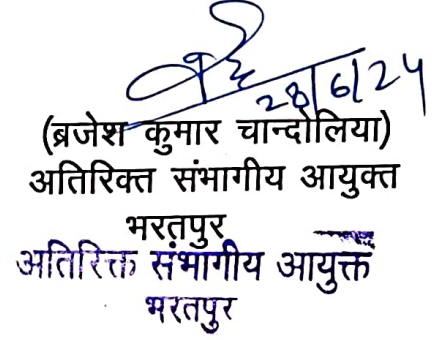 28/6/24
(ब्रजेश कुमार चान्दोलिया)
अतिरिक्त संभागीय आयुक्त
भरतपुर
अतिरिक्त संभागीय आयुक्त
भरतपुर